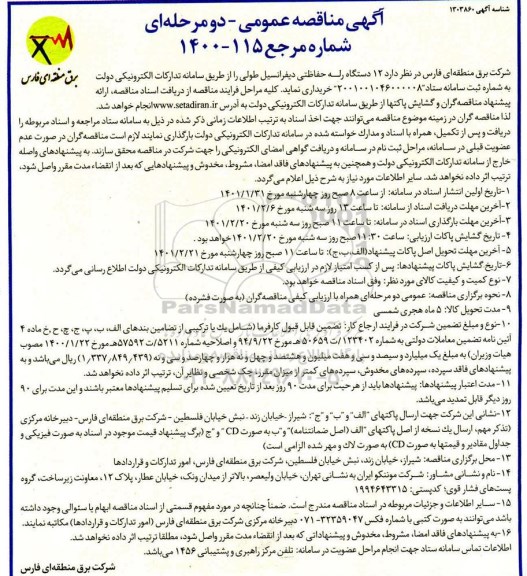 شناسه آگهی ۱۳۰۳۸۶۰
آگهی مناقصه عمومی - دو مرحله‌ای
شماره مرجع ۱۱۵-۱۴۰۰
برق منطقه‌ای فارس
شرکت برق منطقه‌ای فارس در نظر دارد ۱۲ دستگاه رله حفاظتی دیفرانسیل طولی را از طریق سامانه تدارکات الکترونیکی دولت
به شماره ثبت سامانه ستاد "۲۰۰۱۰۰۱۰۴۶۰۰۰۰۰۸" خریداری نماید. کلیه مراحل فرایند مناقصه از دریافت اسناد مناقصه، ارائه
پیشنهاد مناقصه‌گران و گشایش پاکتها از طریق سامانه تدارکات الکترونیکی دولت به آدرس www.setadiran.ir انجام خواهد شد.
لذا مناقصه گران در زمینه موضوع مناقصه می‌توانند جهت اخذ اسناد به ترتیب اطلاعات زمانی ذکر شده در ذیل به سامانه ستاد مراجعه و اسناد مربوطه را
دریافت و پس از تکمیل، همراه با اسناد و مدارک خواسته شده در سامانه تدارکات الکترونیکی دولت بارگذاری نمایند لازم است مناقصه‌گران در صورت عدم
عضویت قبلی در سامانه، مراحل ثبت نام در سامانه و دریافت گواهی امضای الکترونیکی را جهت شرکت در مناقصه محقق سازند. به پیشنهادهای واصله
خارج از سامانه تدارکات الکترونیکی دولت و همچنین به پیشنهادهای فاقد امضا، مشروط، مخدوش و پیشنهادهایی که بعد از انقضاء مدت مقرر واصل شود،
ترتیب اثر داده نخواهد شد. سایر اطلاعات مورد نیاز به شرح ذیل اعلام می‌گردد.
۱-تاریخ اولین انتشار اسناد در سامانه: از ساعت ۸ صبح روز چهارشنبه مورخ ۱۴۰۱/۱/۳۱
۲-آخرین مهلت دریافت اسناد از سامانه: تا ساعت ۱۳ روز سه شنبه مورخ ۱۴۰۱/۲/۶
۳-آخرین مهلت بارگذاری اسناد در سامانه: تا ساعت ۱۱ صبح روز سه شنبه مورخ ۱۴۰۱/۲/۲۰
۴-تاریخ گشایش پاکات ارزیابی: ساعت ۱۱:۳۰ صبح روز سه شنبه مورخ ۱۴۰۱/۲/۲۰ خواهد بود.
۵-آخرین مهلت تحویل اصل پاکات پیشنهاد(الف،ب،ج): تا ساعت ۱۱ صبح روز چهارشنبه مورخ ۱۴۰۱/۲/۲۱
۶-تاریخ گشایش پاکات پیشنهادها: پس از کسب امتیاز لازم در ارزیابی کیفی از طریق سامانه تدارکات الکترونیکی دولت اطلاع رسانی می‌گردد.
۷-نوع کمیت و کیفیت کالای مورد نظر: وفق اسناد مناقصه خواهد بود.
۸-نحوه برگزاری مناقصه: عمومی دو مرحله‌ای همراه با ارزیابی کیفی مناقصه‌گران (به صورت فشرده)
۹-مدت تحویل کالا: ۵ ماه هجری شمسی
۱۰-نوع و مبلغ تضمین شرکت در فرایند ارجاع کار: تضمین قابل قبول کارفرما (شامل یک یا ترکیبی از تضامین بندهای الف، ب، پ، ج، چ، ح، خ ماده ۴
آئین نامه تضمین معاملات دولتی به شماره ۱۲۳۴۰۲/ت۵۰۶۵۹ه مورخ ۹۴/۹/۲۲ و اصلاحیه شماره ۵۲۱۱/ت۵۷۵۹۲ه مورخ ۱۴۰۰/۱/۲۲ مصوب
هیات وزیران) به مبلغ یک میلیارد و سیصد و سی و هفت میلیون و هشتصد و چهل و نه هزار و چهارصد و سی و نه (۱,۳۳۷,۸۴۹,۴۳۹) ریال می‌باشد و به
پیشنهادهای فاقد سپرده، سپرده‌های مخدوش، سپرده‌های کمتر از میزان مقرر، چک شخصی و نظایر آن، ترتیب اثر داده نخواهد شد.
۱۱-مدت اعتبار پیشنهادها: پیشنهادها باید از هر حیث برای مدت ۹۰ روز بعد از تاریخ تعیین شده برای تسلیم پیشنهادها معتبر باشند و این مدت برای ۹۰
روز دیگر قابل تمدید می‌باشد.
۱۲-نشانی این شرکت جهت ارسال پاکتهای "الف" و "ب" و "ج": شیراز. خیابان زند. نبش خیابان فلسطین - شرکت برق منطقه‌ای فارس - دبیرخانه مرکزی
(تذکر مهم، ارسال یک نسخه از اصل پاکتهای "الف (اصل ضمانتنامه)" و "ب به صورت CD" و "ج (برگ پیشنهاد قیمت موجود در اسناد به صورت فیزیکی و
جداول مقادیر و قیمتها به صورت CD) به صورت لاک و مهر شده الزامی است)
۱۳-محل برگزاری مناقصه: شیراز، خیابان زند، نبش خیابان فلسطین، شرکت برق منطقه‌ای فارس، امور تدارکات و قراردادها
۱۴-نام و نشانی مشاور: شرکت موننکو ایران به نشانی تهران، خیابان ولیعصر، بالاتر از میدان ونک، خیابان عطار، پلاک ۱۲، معاونت زیرساخت، گروه
پست‌های فشار قوی؛ کدپستی: ۱۹۹۴۶۴۳۳۱۵
۱۵-سایر اطلاعات و جزئیات مربوطه در اسناد مناقصه مندرج است. ضمناً چنانچه در مورد مفهوم قسمتی از اسناد مناقصه ابهام یا سئوالی وجود داشته
باشد می‌توانند به صورت کتبی با شماره فکس ۳۲۳۵۹۰۴۷-۰۷۱ دبیرخانه مرکزی شرکت برق منطقه‌ای فارس (امور تدارکات و قراردادها) مکاتبه نمایند.
۱۶-به پیشنهادهای فاقد امضا، مشروط، مخدوش و پیشنهاداتی که بعد از انقضاء مدت مقرر واصل شود، مطلقا ترتیب اثر داده نخواهد شد.
اطلاعات تماس سامانه ستاد جهت انجام مراحل عضویت در سامانه: تلفن مرکز راهبری و پشتیبانی ۱۴۵۶ می‌باشد.
شرکت برق منطقه‌ای فارس
ParsNamadData